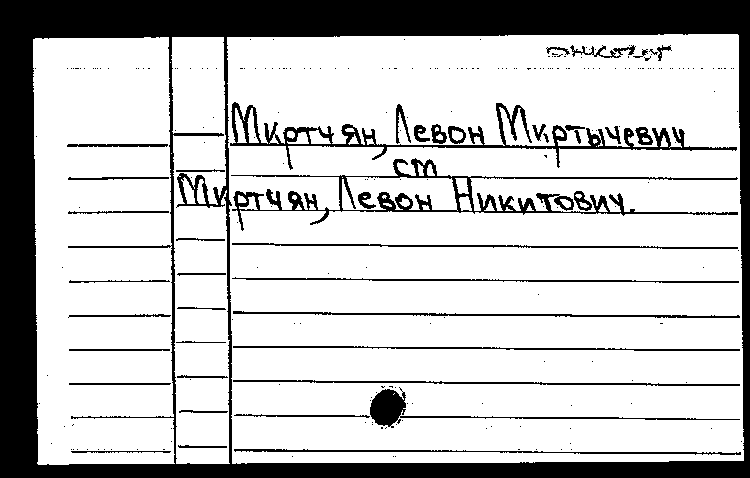 Мкртчян, Левон Мкртычевич
см
Мкртчян, Левон Никитович.